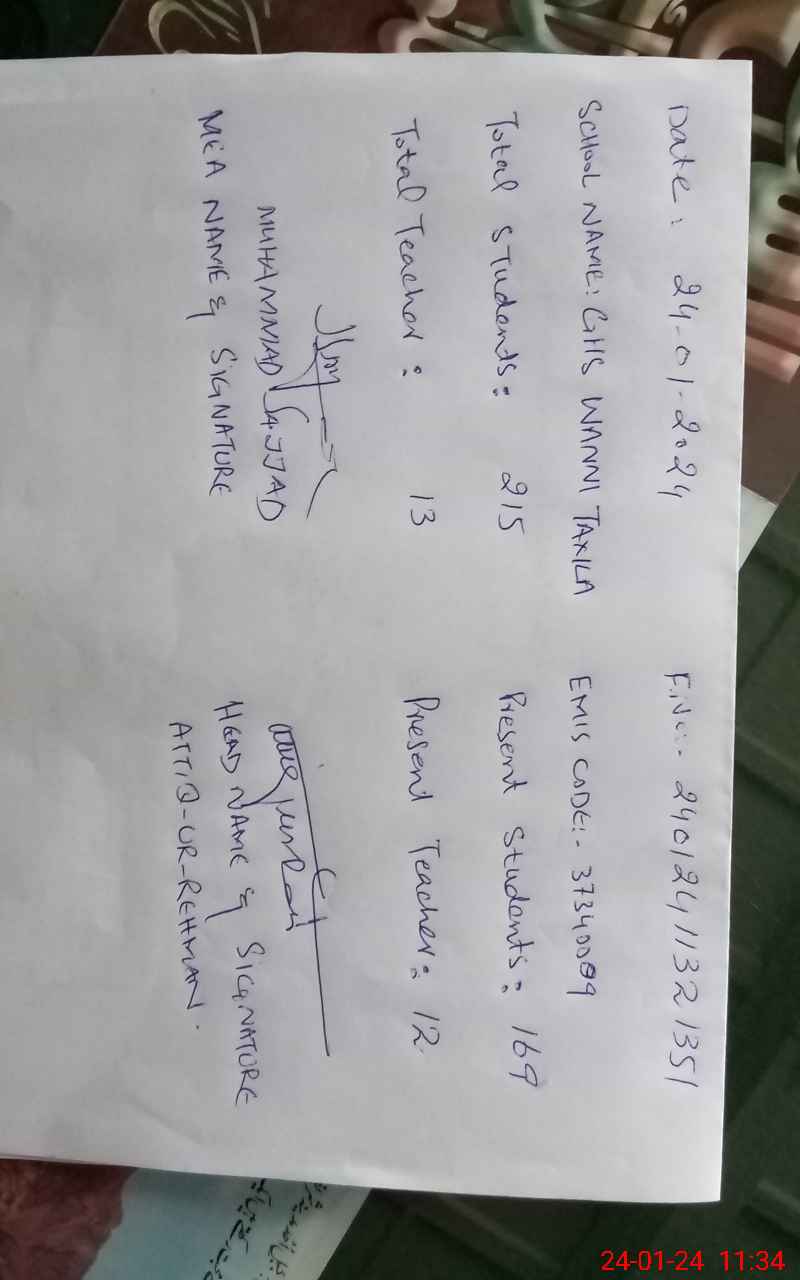 Date: 24-01-2024 F.No:- 2401241132 1351
SCHOOL NAME: GHS WANNI TAXILA EMIS CODE:- 37340009
Total Students: 215 Present Students: 169
Total Teacher: 13 Present Teacher: 12
MUHAMMAD SAJJAD
MEA NAME & SIGNATURE HEAD NAME & SIGNATURE
ATTIQ-UR-REHMAN.
24-01-24 11:34